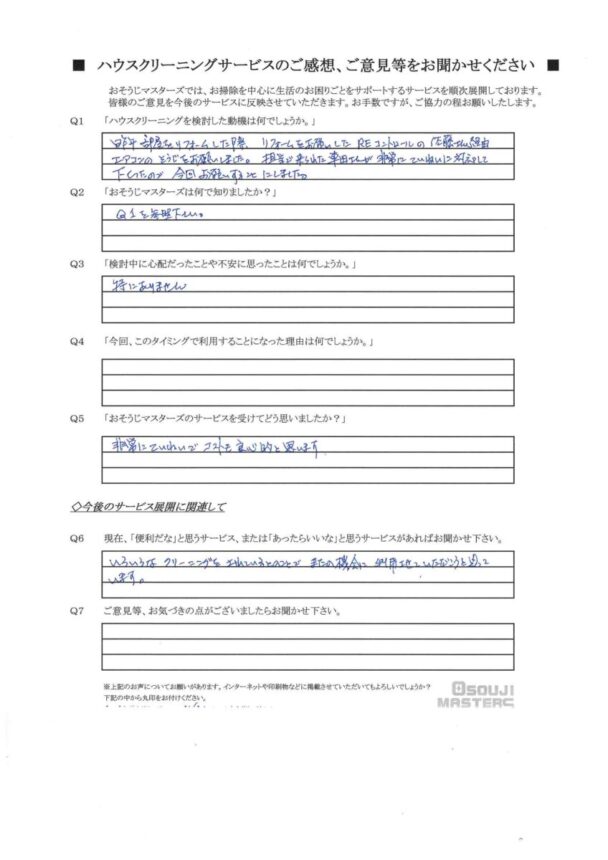 ■ ハウスクリーニングサービスのご感想、ご意見等をお聞かせください ■
おそうじマスターズでは、お掃除を中心に生活のお困りごとをサポートするサービスを順次展開しております。
皆様のご意見を今後のサービスに反映させていただきます。お手数ですが、ご協力の程お願いしたします。
Q1 「ハウスクリーニングを検討した動機は何でしょうか。」
昨年 部屋をリフォームした際、リフォームをお願いした REコントロールの 佐藤さん経由
エアコンのそうじをお願いしました。担当で来られた さんが 非常に ていねいに 対応して
下さったので 今回 お願いすることにしました。
Q2 「おそうじマスターズは何で知りましたか?」
Q1を参照下さい。
Q3 「検討中に心配だったことや不安に思ったことは何でしょうか。」
特にありません
Q4 「今回、このタイミングで利用することになった理由は何でしょうか。」
Q5 「おそうじマスターズのサービスを受けてどう思いましたか?」
非常にていねいで コストも良心的と思います
◇今後のサービス展開に関連して
Q6 現在、「便利だな」と思うサービス、または「あったらいいな」と思うサービスがあればお聞かせ下さい。
いろいろな クリーニングを されているとのことで またの機会に 利用させていただこうと思って
います。
Q7 ご意見等、お気づきの点がございましたらお聞かせ下さい。
※上記のお声についてお願いがあります。インターネットや印刷物などに掲載させていただいてもよろしいでしょうか?
下記の中から丸印をお付けください。
OSOUJI
MASTERS